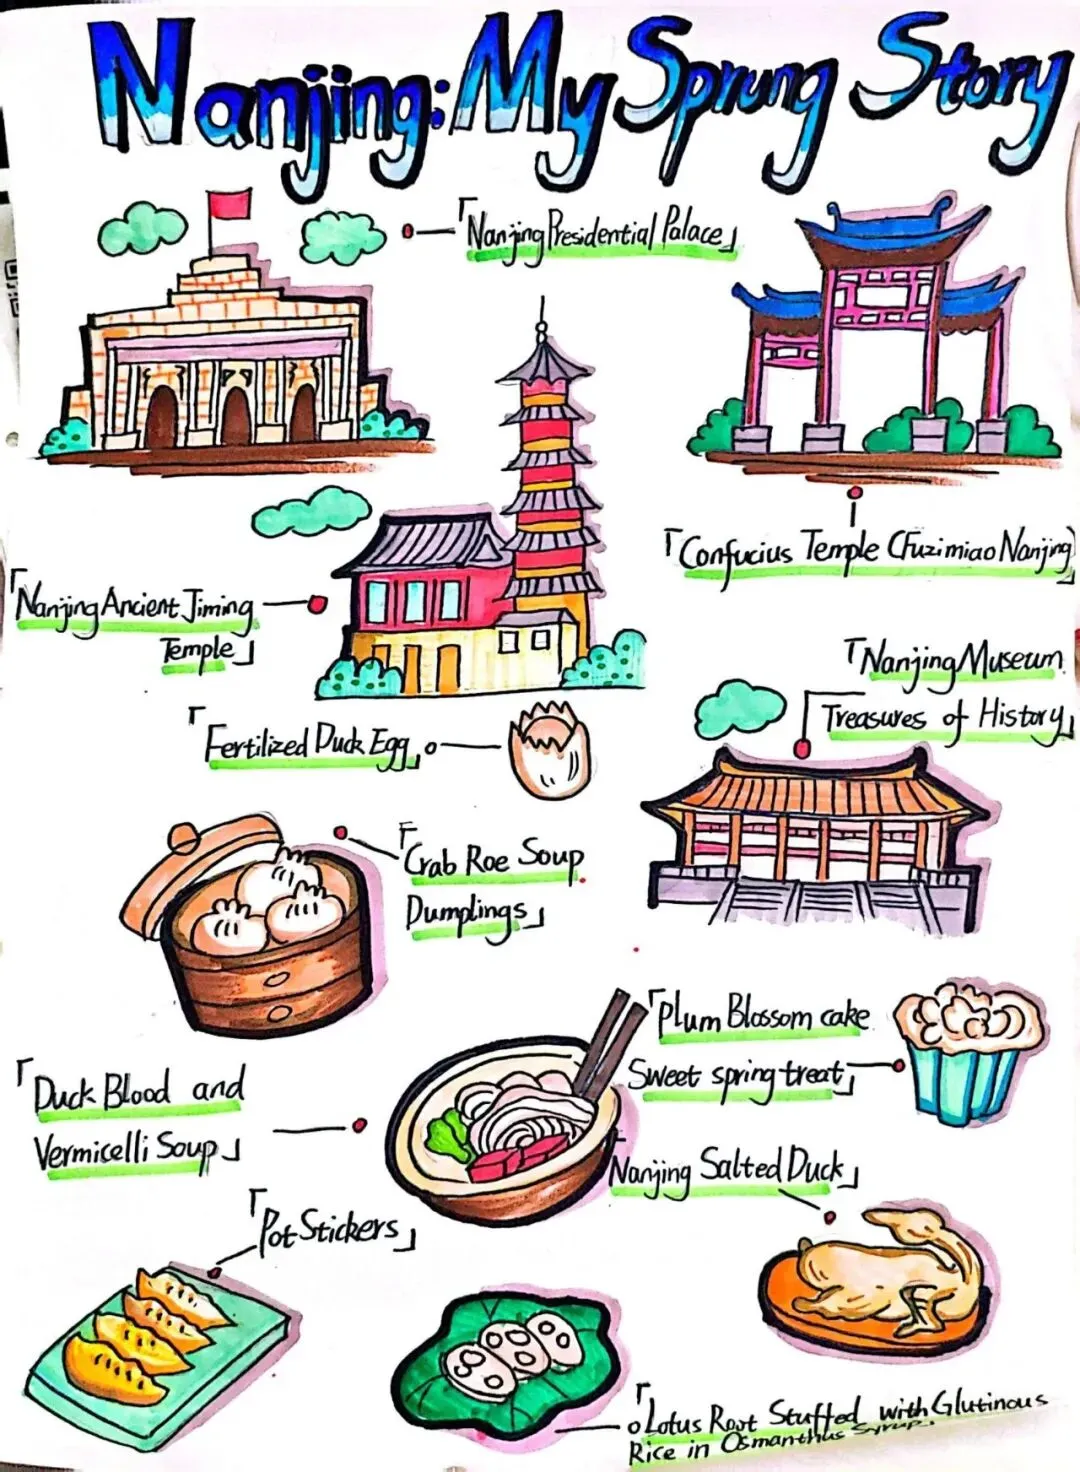 Nanjing: My Sprung Story
「Nanjing Presidential Palace」
「Confucius Temple (Fuzimiao Nanjing)」
「Nanjing Ancient Jiming
Temple」
「Nanjing Museum
Treasures of History」
「Fertilized Duck Egg」
「Crab Roe Soup
Dumplings」
「Plum Blossom cake
Sweet spring treat」
「Duck Blood and
Vermicelli Soup」
「Nanjing Salted Duck」
「Pot Stickers」
「Lotus Root Stuffed with Glutinous
Rice in Osmanthus Syrup.